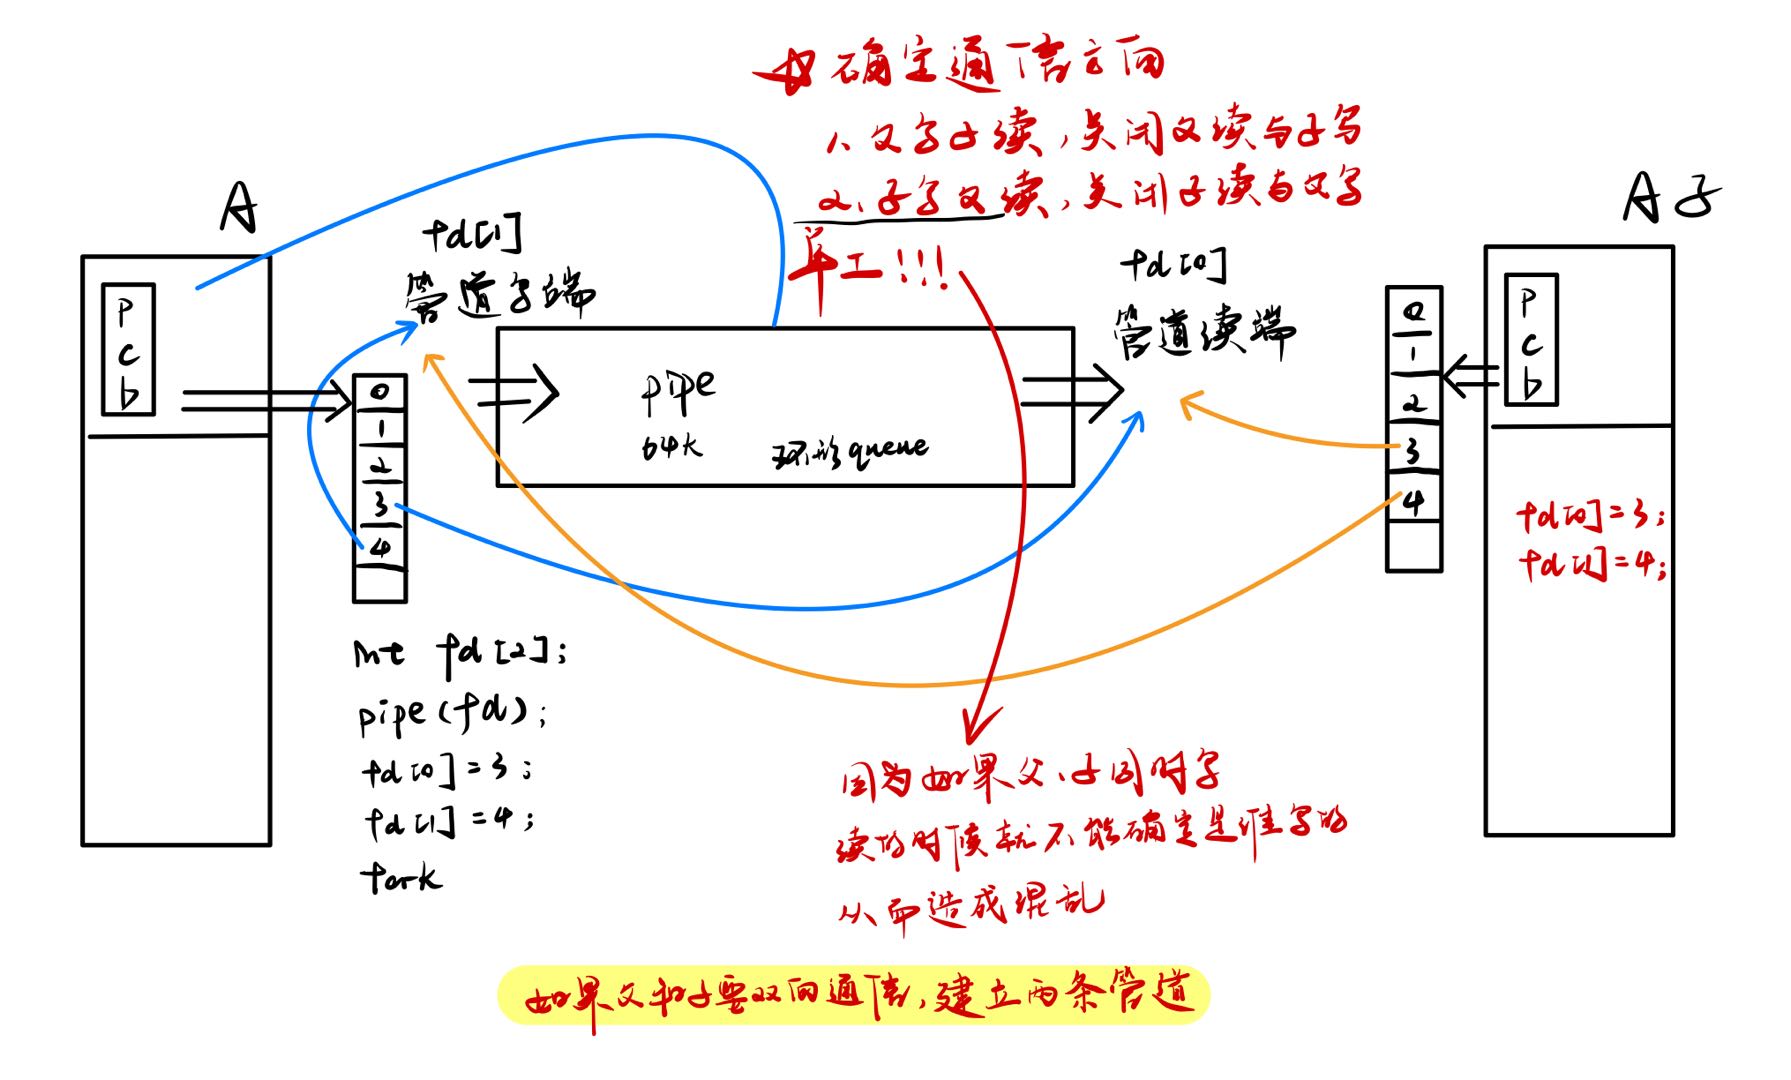 确定通信方向
1、父写子读,关闭父读与子写
2、子写父读,关闭子读与父写
单工!!!
A
A子
fd[1]
管道写端
fd[0]
管道读端
Pcb
0
1
2
3
4
pipe
64k 环形queue
0
1
2
3
4
Pcb
fd[0]=3;
fd[1]=4;
int fd[2];
pipe(fd);
fd[0]=3;
fd[1]=4;
fork
因为如果父、子同时写
读的时候就不能确定是谁写的
从而造成混乱
如果父和子要双向通信,建立两条管道